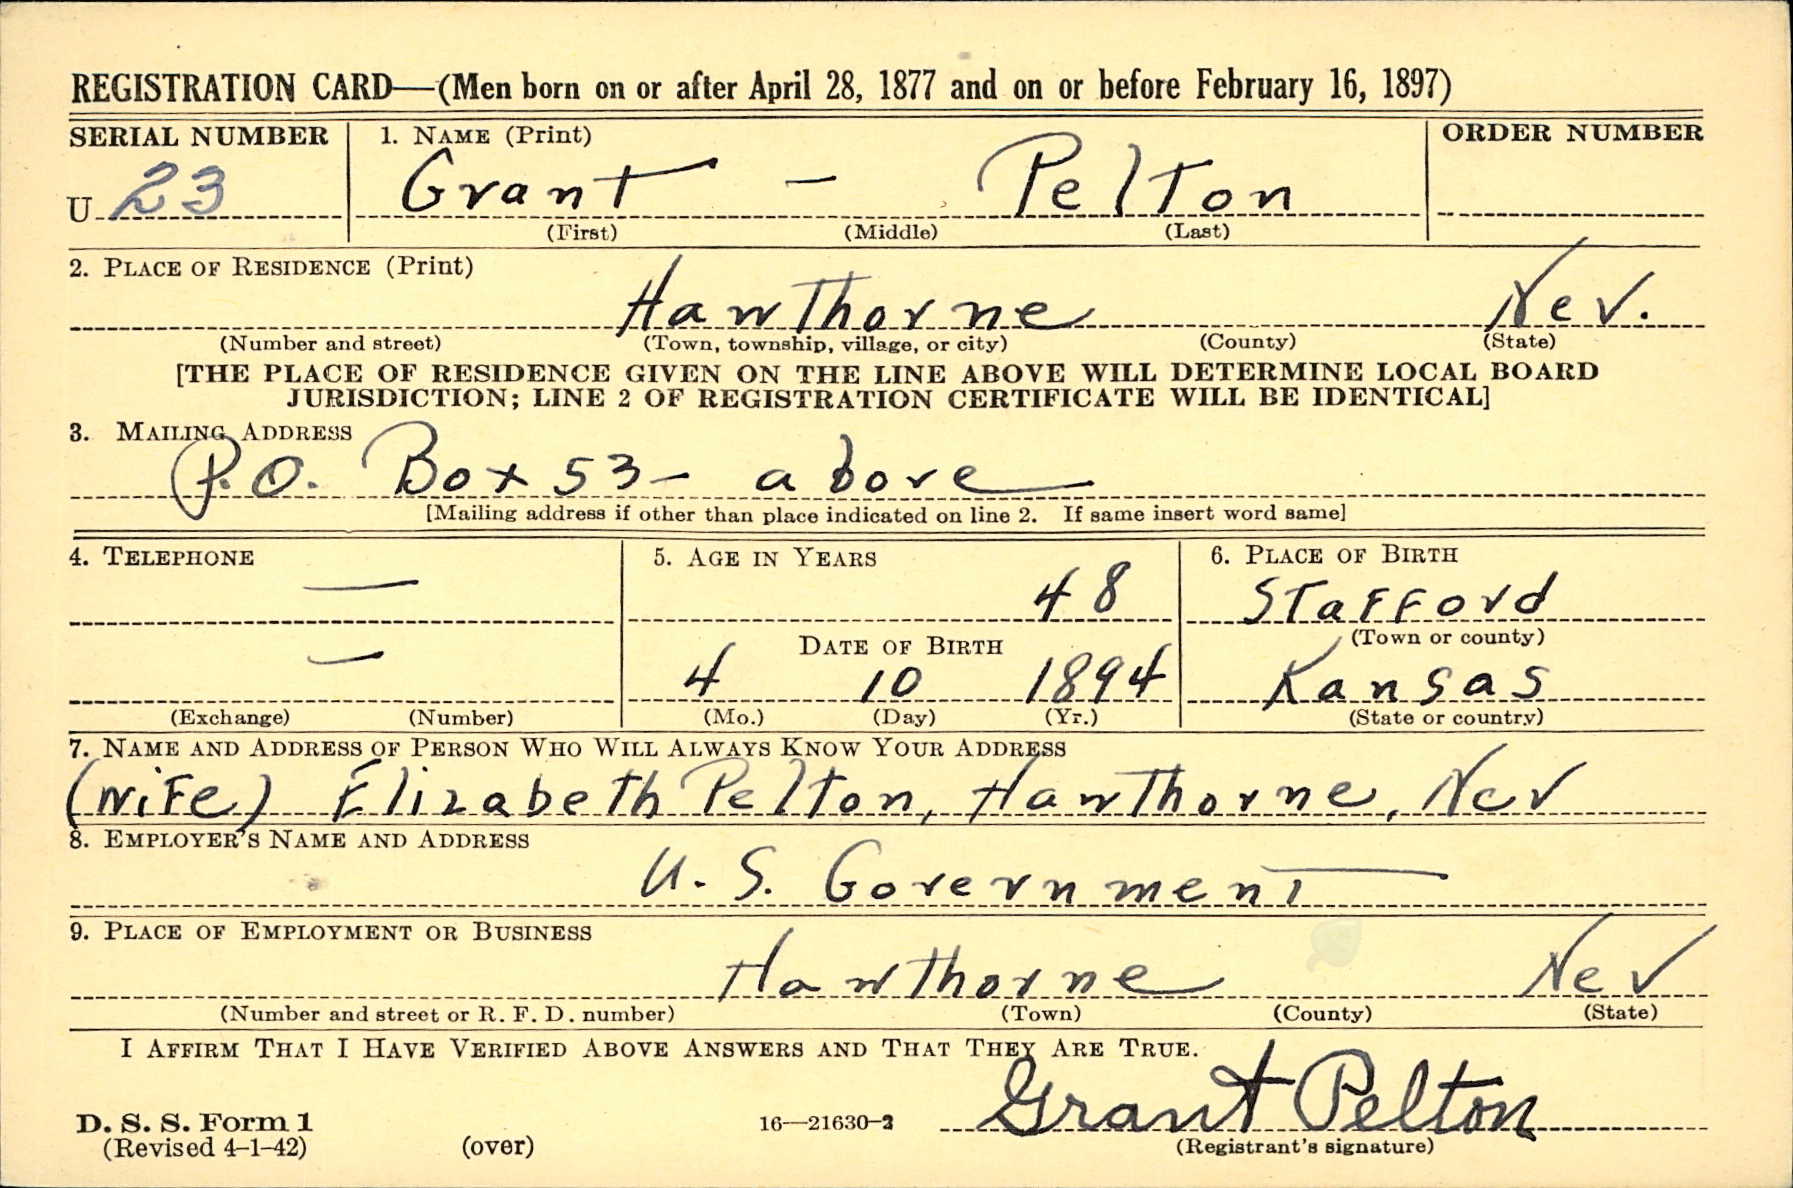 REGISTRATION CARD—(Men born on or after April 28, 1877 and on or before February 16, 1897)
SERIAL NUMBER 1. NAME (Print) ORDER NUMBER
U 23 Grant — Pelton
(First) (Middle) (Last)
2. PLACE OF RESIDENCE (Print)
Hawthorne Nev.
(Number and street) (Town, township, village, or city) (County) (State)
[THE PLACE OF RESIDENCE GIVEN ON THE LINE ABOVE WILL DETERMINE LOCAL BOARD
JURISDICTION; LINE 2 OF REGISTRATION CERTIFICATE WILL BE IDENTICAL]
3. MAILING ADDRESS
P.O. Box 53 — above
[Mailing address if other than place indicated on line 2. If same insert word same]
4. TELEPHONE 5. AGE IN YEARS 6. PLACE OF BIRTH
— 48 Stafford
DATE OF BIRTH (Town or county)
— 4 10 1894 Kansas
(Exchange) (Number) (Mo.) (Day) (Yr.) (State or country)
7. NAME AND ADDRESS OF PERSON WHO WILL ALWAYS KNOW YOUR ADDRESS
(wife) Elizabeth Pelton, Hawthorne, Nev
8. EMPLOYER'S NAME AND ADDRESS
U. S. Government
9. PLACE OF EMPLOYMENT OR BUSINESS
Hawthorne Nev
(Number and street or R. F. D. number) (Town) (County) (State)
I AFFIRM THAT I HAVE VERIFIED ABOVE ANSWERS AND THAT THEY ARE TRUE.
Grant Pelton
D. S. S. Form 1 16—21630-2
(Revised 4-1-42) (over) (Registrant's signature)